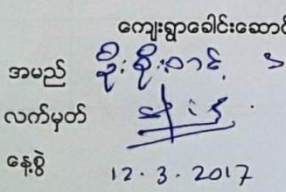 ကျေးရွာခေါင်းဆောင်
အမည် ဦးစိုးဝင်း
လက်မှတ်
နေ့စွဲ 12.3.2017